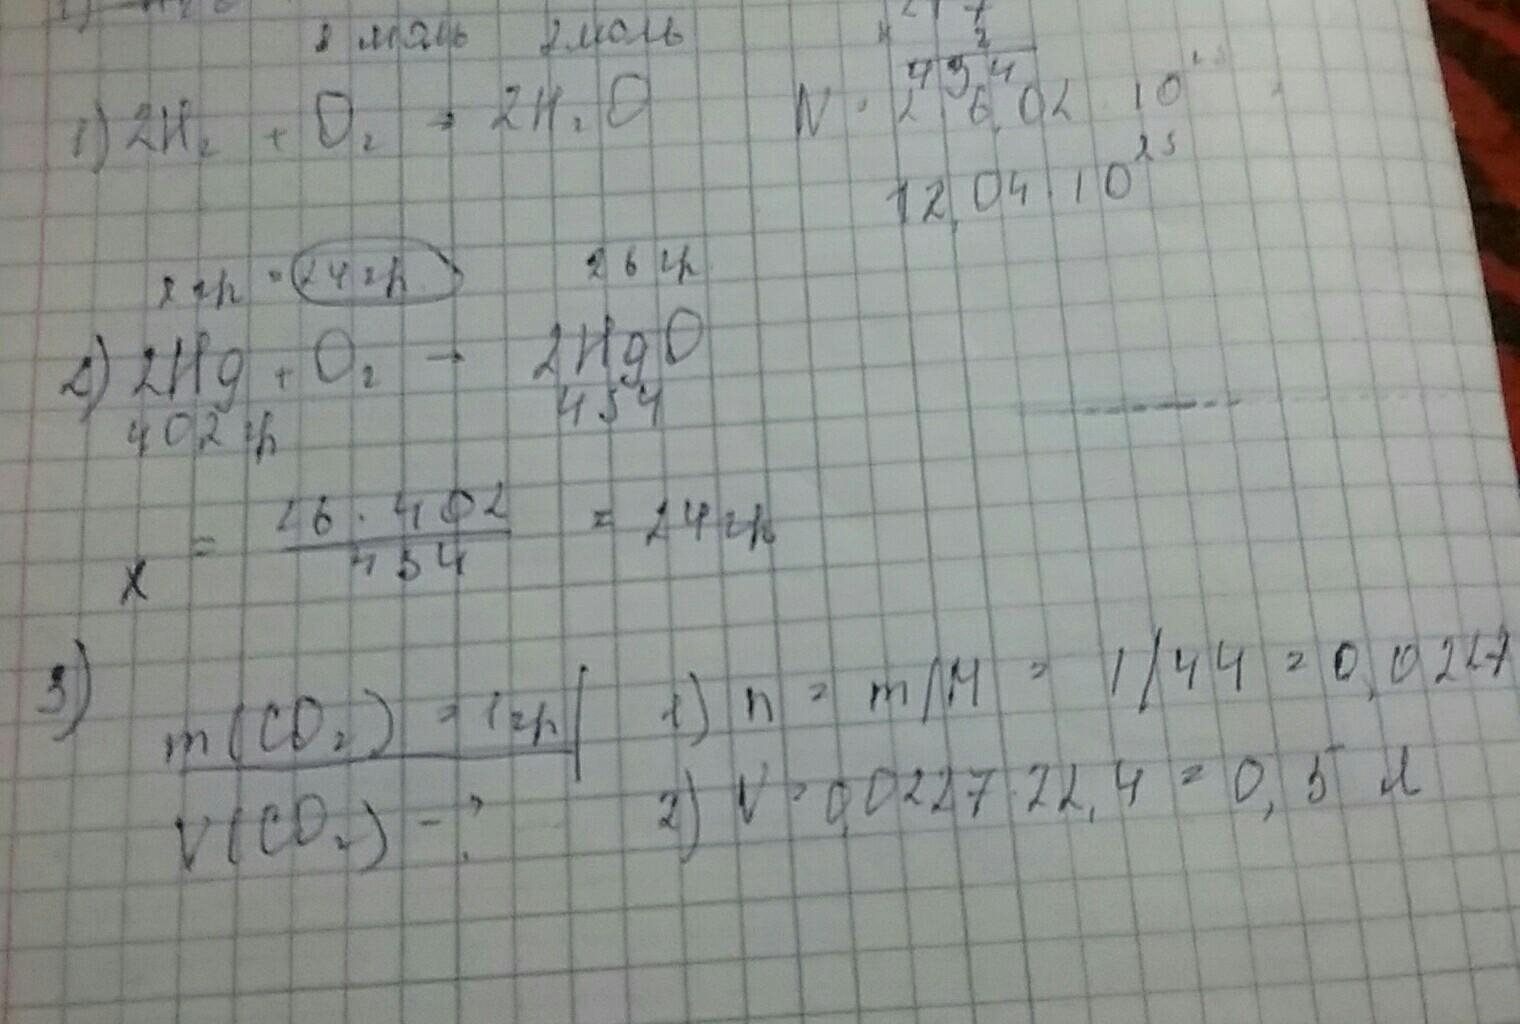 1 моль 2 моль
2
454
1) 2H₂ + O₂ → 2H₂O N = 2 · 6,02 · 10²³ =
12,04 · 10²³
x гр = 24 гр. 26 гр
2) 2Hg + O₂ → 2HgO
402 гр 454
x = 26 · 402 / 454 = 24 гр
3) m(CO₂) = 1 гр 1) n = m/M = 1/44 = 0,0227
V(CO₂) - ? 2) V = 0,0227 · 22,4 = 0,5 л